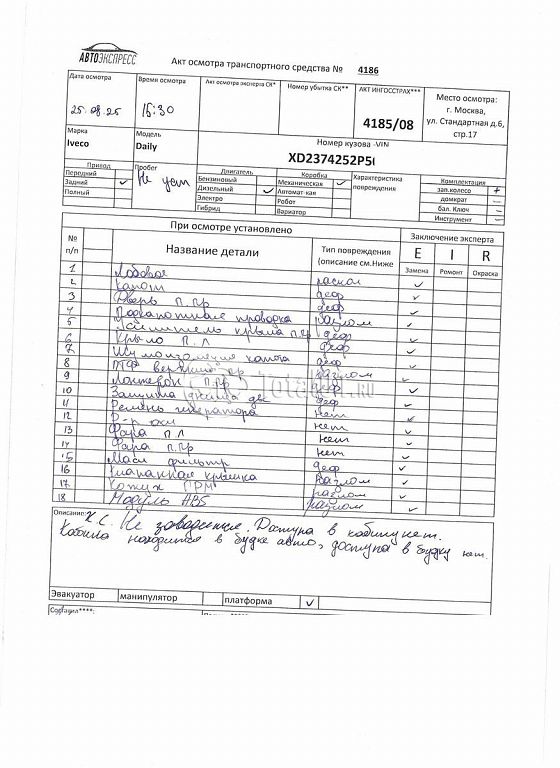 АВТОЭКСПРЕСС
Акт осмотра транспортного средства № 4186
Дата осмотра
25.08.25
Время осмотра
15:30
Акт осмотра эксперта СК*
Номер убытка СК**
АКТ ИНГОССТРАХ***
4185/08
Место осмотра:
г. Москва,
ул. Стандартная д.6,
стр.17
Марка
Iveco
Модель
Daily
Номер кузова -VIN
XD2374252P5
Привод
Передний
Задний ✓
Полный
Пробег
Не уст
Двигатель
Бензиновый
Дизельный ✓
Электро
Гибрид
Коробка
Механическая ✓
Автомат-кая
Робот
Вариатор
Характеристика
повреждения
Комплектация
зап.колесо +
домкрат –
бал. Ключ –
Инструмент –
При осмотре установлено
Заключение эксперта
№ п/п
Название детали
Тип повреждения
(описание см.Ниже
E I R
Замена Ремонт Окраска
1 Лобовое раскол ✓
2 Капот деф ✓
3 Дверь п.пр деф ✓
4 Подкапотная проводка разлом ✓
5 Усилитель крыла п.пр деф ✓
6 Крыло п.л деф ✓
7 Шумоизоляция капота деф ✓
8 ПТФ разлом ✓
9 Лонжерон п.пр деф ✓
10 Защита днища две деф ✓
11 Ремень генератора нет ✓
12 нет ✓
13 Фара п л нет ✓
14 Фара п.пр нет ✓
15 Масл фильтр деф ✓
16 Клапанная крышка разлом ✓
17 Кожух ГРМ разлом ✓
18 Модуль ABS разлом ✓
Total .RU
Описание: К.С. Не заводится. Доступа в кабину нет.
Кабина находится в будке авто, доступа в будку нет.
Эвакуатор манипулятор платформа ✓